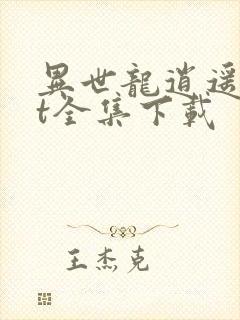 異世龍逍遥
t全集下載
王杰克